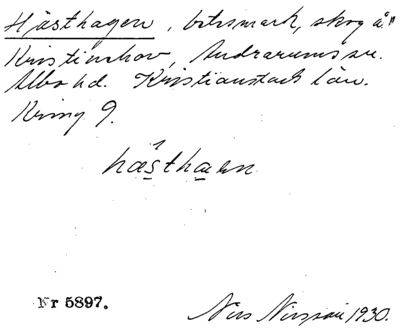 Hästhagen, betesmark, skog å
Kristinehov, Andrarums sn.
Albo hd. Kristianstads län.
Kring 9.
hästhaen
Nr 5897.
Nils 1930.